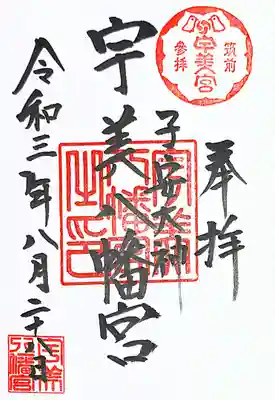 奉拝
筑前
宇美宮
参拝
子安大神
宇美八幡宮
令和三年八月二十八日